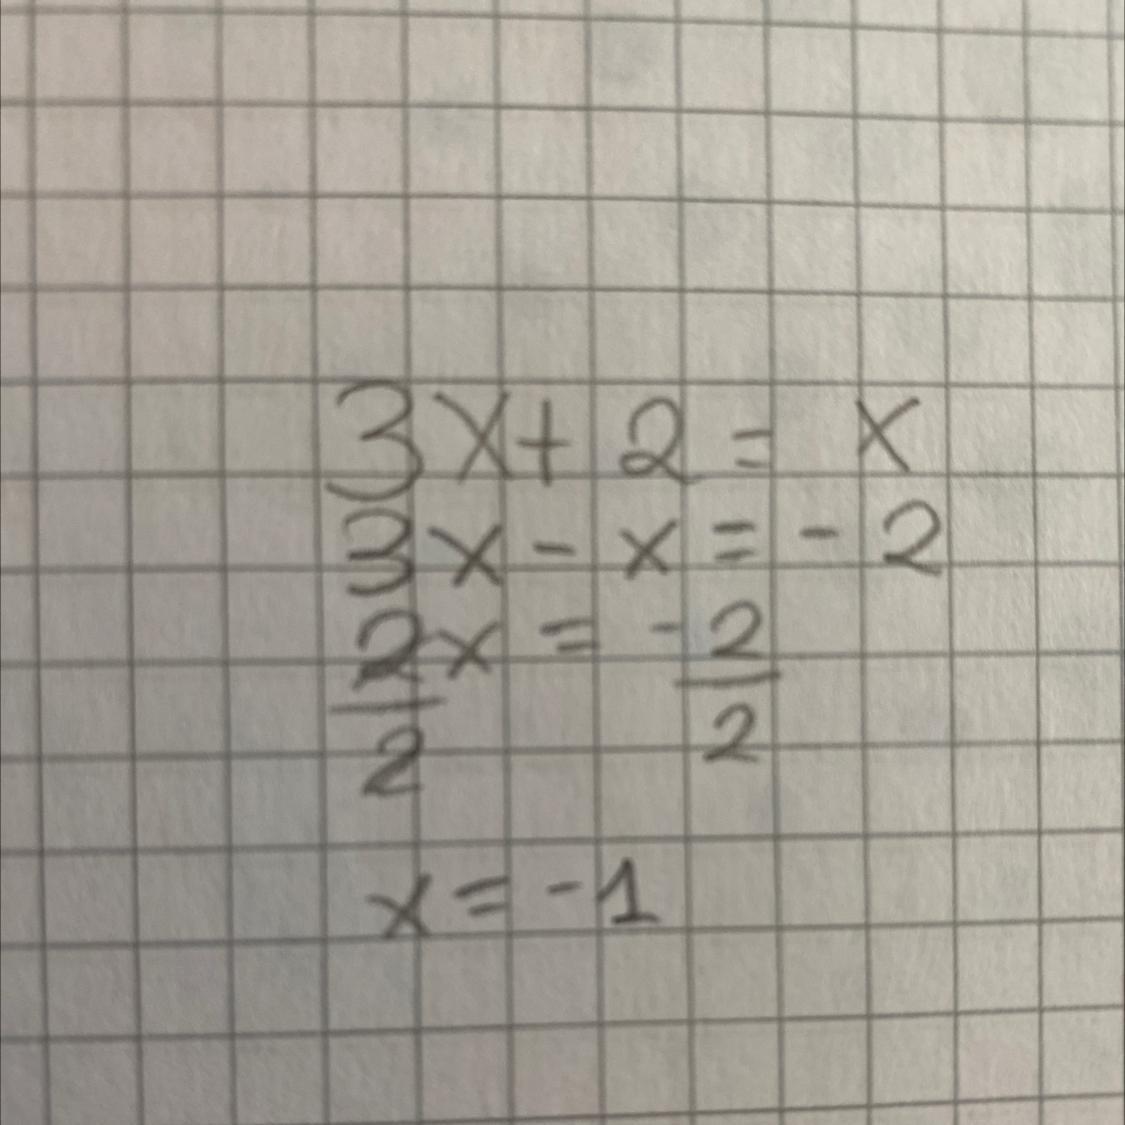 3x + 2 = x
3x - x = - 2
2x/2 = -2/2
x = -1